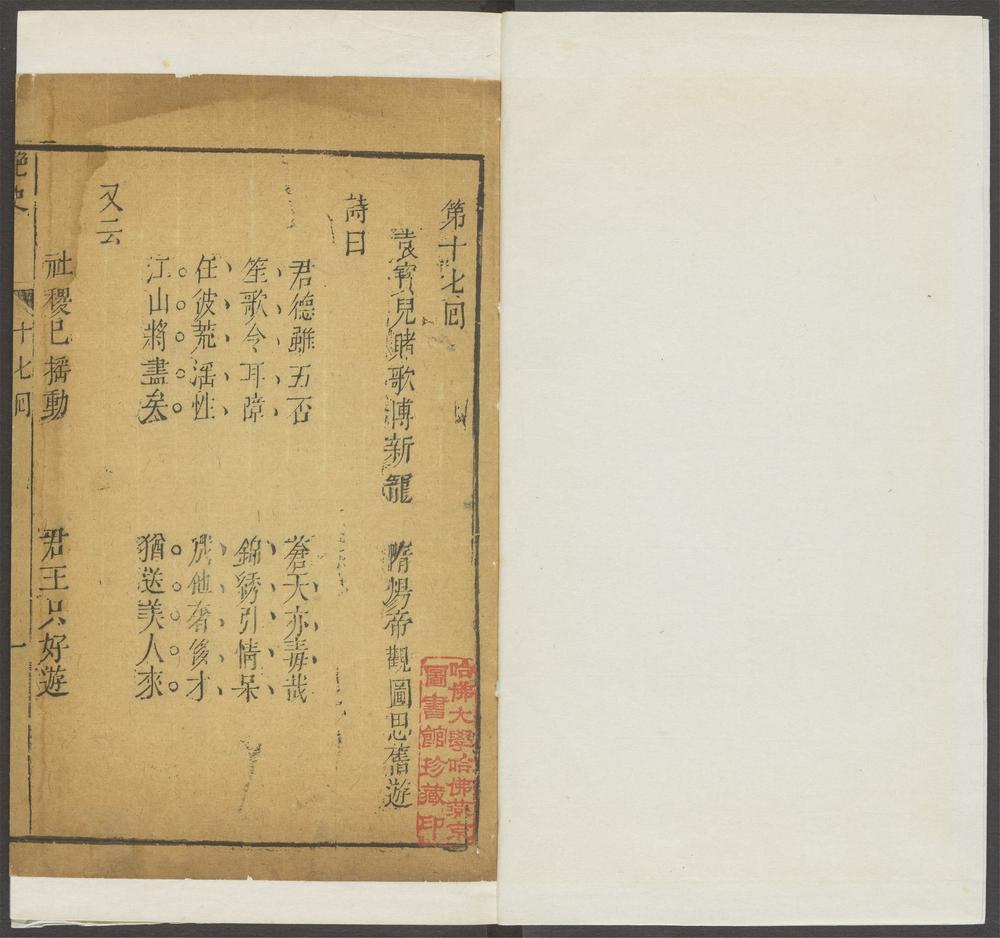 第十七回
袁寶兒賭歌博新寵　隋煬帝觀圖思舊遊
詩曰
君德雖五否　蒼天亦毒哉
笙歌令耳障　錦綉引情呆
任彼荒滛性　他奢後才
江山將盡矣　猶送美人來
又云
社稷已摇動　君王只好遊
艷史　十七回　一
哈佛大學哈佛燕京
圖書館珍藏印